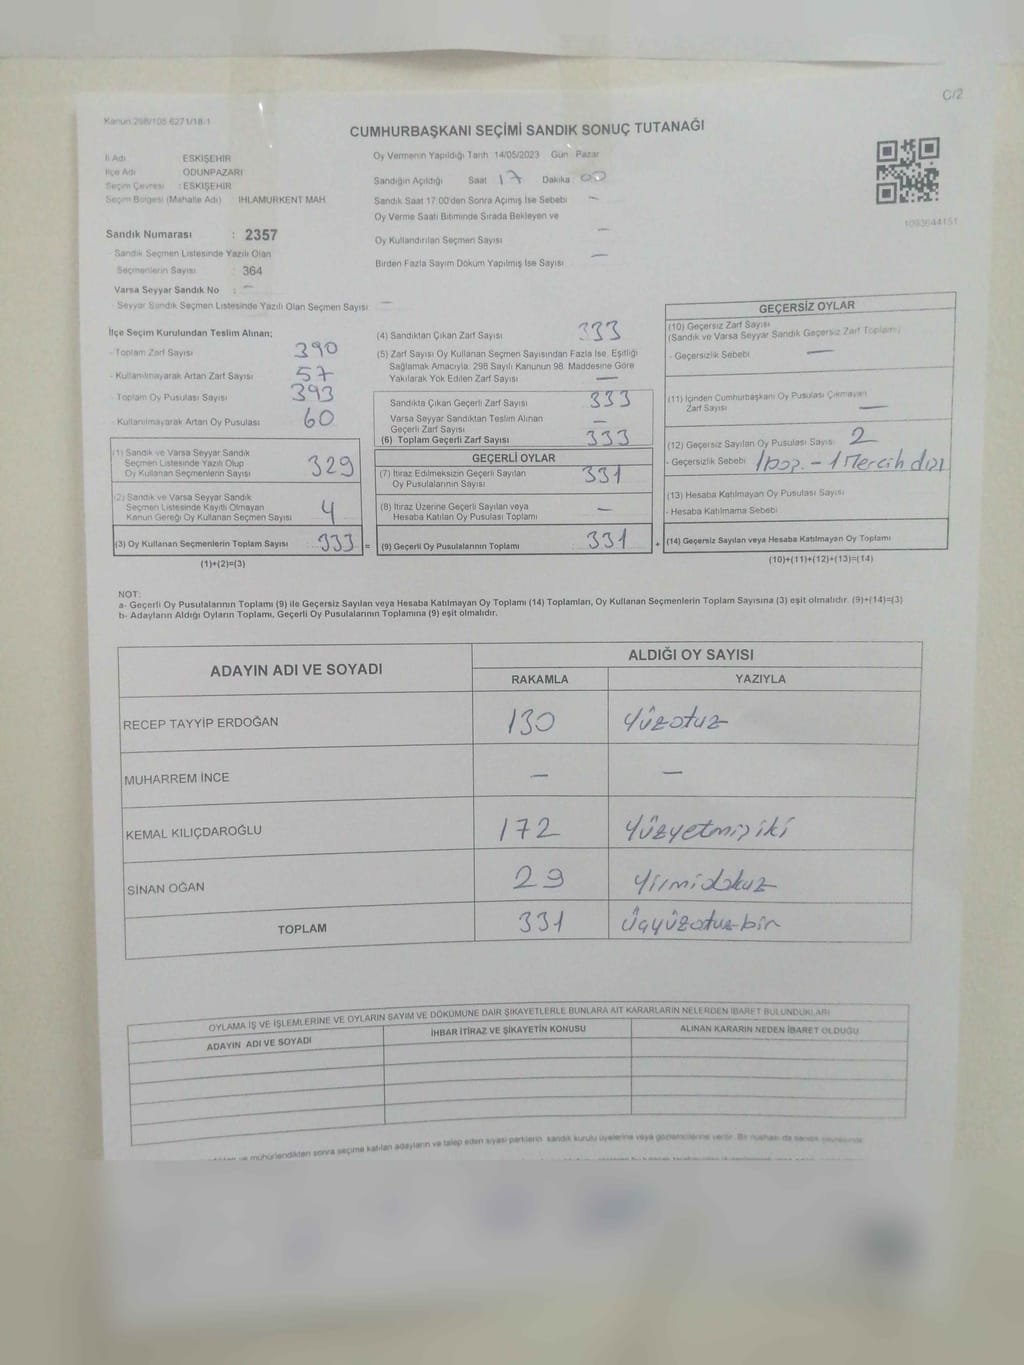 C/2
Kanun 298/105 6271/18-1
CUMHURBAŞKANI SEÇİMİ SANDIK SONUÇ TUTANAĞI
İl Adı ESKİŞEHİR
İlçe Adı ODUNPAZARI
Seçim Çevresi : ESKİŞEHİR
Seçim Bölgesi (Mahalle Adı) IHLAMURKENT MAH
Sandık Numarası : 2357
Sandık Seçmen Listesinde Yazılı Olan
Seçmenlerin Sayısı 364
Varsa Seyyar Sandık No : —
Seyyar Sandık Seçmen Listesinde Yazılı Olan Seçmen Sayısı —
Oy Vermenin Yapıldığı Tarih 14/05/2023 Gün Pazar
Sandığın Açıldığı Saat 17 Dakika 00
Sandık Saat 17:00'den Sonra Açımış İse Sebebi —
Oy Verme Saati Bitiminde Sırada Bekleyen ve
Oy Kullandırılan Seçmen Sayısı —
Birden Fazla Sayım Döküm Yapılmış İse Sayısı —
1093644151
İlçe Seçim Kurulundan Teslim Alınan;
- Toplam Zarf Sayısı 390
- Kullanılmayarak Artan Zarf Sayısı 57
- Toplam Oy Pusulası Sayısı 393
- Kullanılmayarak Artan Oy Pusulası 60
(1) Sandık ve Varsa Seyyar Sandık
Seçmen Listesinde Yazılı Olup
Oy Kullanan Seçmenlerin Sayısı 329
(2) Sandık ve Varsa Seyyar Sandık
Seçmen Listesinde Kayıtlı Olmayan
Kanun Gereği Oy Kullanan Seçmen Sayısı 4
(3) Oy Kullanan Seçmenlerin Toplam Sayısı 333 =
(1)+(2)=(3)
(4) Sandıktan Çıkan Zarf Sayısı 333
(5) Zarf Sayısı Oy Kullanan Seçmen Sayısından Fazla İse, Eşitliği
Sağlamak Amacıyla, 298 Sayılı Kanunun 98. Maddesine Göre
Yakılarak Yok Edilen Zarf Sayısı —
Sandıkta Çıkan Geçerli Zarf Sayısı 333
Varsa Seyyar Sandıktan Teslim Alınan
Geçerli Zarf Sayısı —
(6) Toplam Geçerli Zarf Sayısı 333
GEÇERLİ OYLAR
(7) İtiraz Edilmeksizin Geçerli Sayılan
Oy Pusulalarının Sayısı 331
(8) İtiraz Üzerine Geçerli Sayılan veya
Hesaba Katılan Oy Pusulası Toplamı —
(9) Geçerli Oy Pusulalarının Toplamı 331 +
GEÇERSİZ OYLAR
(10) Geçersiz Zarf Sayısı
(Sandık ve Varsa Seyyar Sandık Geçersiz Zarf Toplamı)
- Geçersizlik Sebebi —
(11) İçinden Cumhurbaşkanı Oy Pusulası Çıkmayan
Zarf Sayısı —
(12) Geçersiz Sayılan Oy Pusulası Sayısı 2
- Geçersizlik Sebebi 1 Boş. - 1 Mercih dışı
(13) Hesaba Katılmayan Oy Pusulası Sayısı
- Hesaba Katılmama Sebebi
(14) Geçersiz Sayılan veya Hesaba Katılmayan Oy Toplamı
(10)+(11)+(12)+(13)=(14)
NOT:
a- Geçerli Oy Pusulalarının Toplamı (9) ile Geçersiz Sayılan veya Hesaba Katılmayan Oy Toplamı (14) Toplamları, Oy Kullanan Seçmenlerin Toplam Sayısına (3) eşit olmalıdır. (9)+(14)=(3)
b- Adayların Aldığı Oyların Toplamı, Geçerli Oy Pusulalarının Toplamına (9) eşit olmalıdır.
ADAYIN ADI VE SOYADI ALDIĞI OY SAYISI
RAKAMLA YAZIYLA
RECEP TAYYİP ERDOĞAN 130 Yüzotuz
MUHARREM İNCE — —
KEMAL KILIÇDAROĞLU 172 Yüzyetmişiki
SİNAN OĞAN 29 Yirmidokuz
TOPLAM 331 Üçyüzotuzbir
OYLAMA İŞ VE İŞLEMLERİNE VE OYLARIN SAYIM VE DÖKÜMÜNE DAİR ŞİKAYETLERLE BUNLARA AİT KARARLARIN NELERDEN İBARET BULUNDUKLARI
ADAYIN ADI VE SOYADI İHBAR İTİRAZ VE ŞİKAYETİN KONUSU ALINAN KARARIN NEDEN İBARET OLDUĞU
mühürlendikten sonra seçime katılan adayların ve talep eden siyasi partilerin sandık kurulu üyelerine veya gözlemcilerine verilir. Bir nüshası da sandık